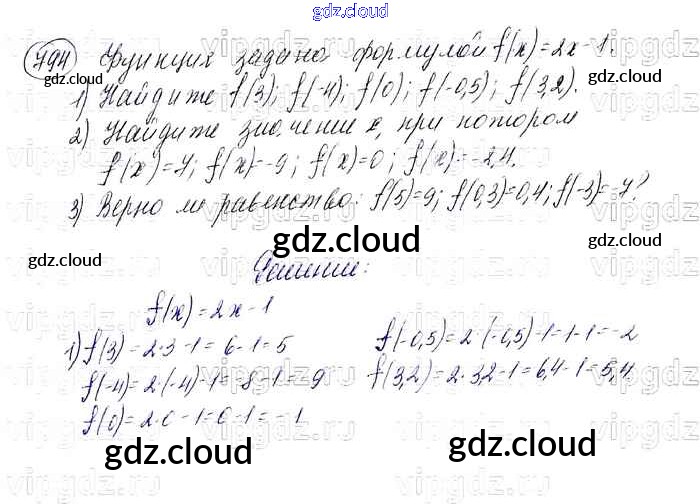 gdz.cloud
794 Функция задана формулой f(x)=2x-1.
gdz.cloud
1) Найдите f(3); f(-4); f(0); f(-0,5); f(3,2).
2) Найдите значение x, при котором
f(x)=7; f(x)=-9; f(x)=0; f(x)=-2,4.
3) Верно ли равенство: f(5)=9; f(0,3)=0,4; f(-3)=-7?
gdz.cloud gdz.cloud gdz.cloud
Решение:
f(x)=2x-1
1) f(3)=2·3-1=6-1=5 f(-0,5)=2·(-0,5)-1=-1-1=-2
f(-4)=2·(-4)-1=-8-1=-9 f(3,2)=2·3,2-1=6,4-1=5,4.
f(0)=2·0-1=0-1=-1
gdz.cloud gdz.cloud